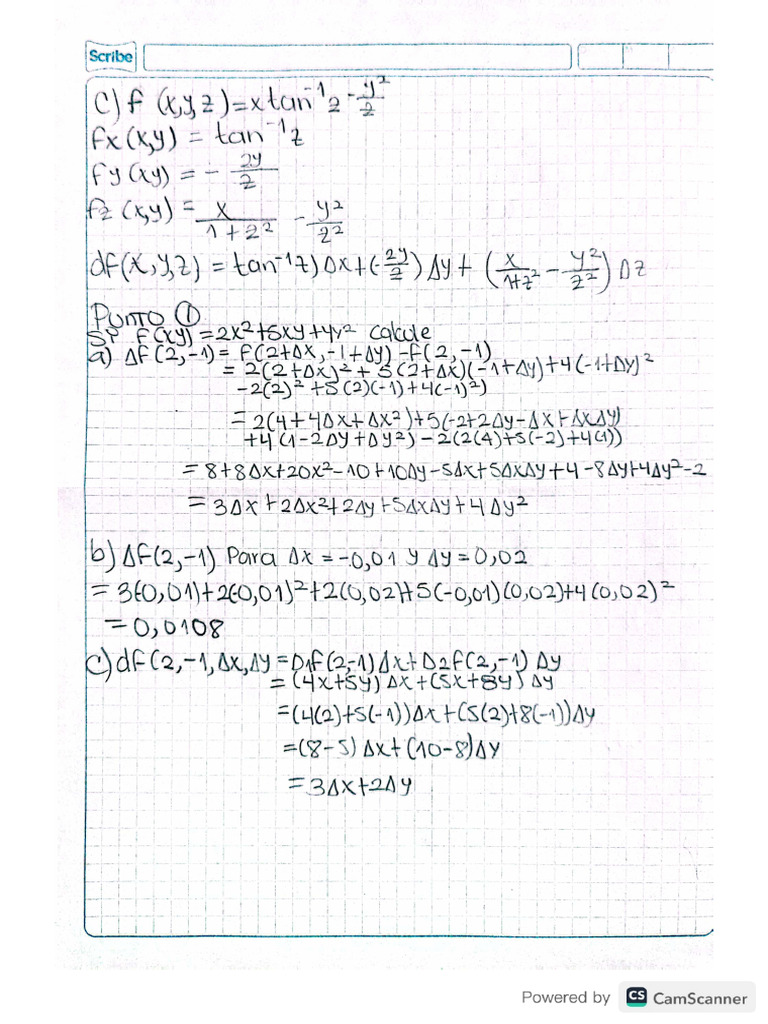 Scribe
c) f (x,y,z) = x tan⁻¹ z - y²/z
fx (x,y) = tan⁻¹ z
fy (xy) = - 2y/z
fz (x,y) = x/1+z² - y²/z²
df(x,y,z) = tan⁻¹z) Δx + (-2y/z) Δy + (x/1+z² - y²/z²) Δz
Punto ①
Si f(xy) = 2x²+5xy+4y² calcule
a) Δf(2,-1) = f(2+Δx, -1+Δy) - f(2,-1)
= 2(2+Δx)² + 5(2+Δx)(-1+Δy) + 4(-1+Δy)²
-2(2)² +5(2)(-1)+4(-1)²)
= 2(4+4Δx+Δx²)+5(-2+2Δy-Δx+ΔxΔy)
+4(1-2Δy+Δy²)-2(2(4)+5(-2)+4(1))
= 8+8Δx+20x²-10+10Δy-5Δx+5ΔxΔy+4-8Δy+4Δy²-2
= 3Δx+2Δx²+2Δy+5ΔxΔy+4Δy²
b) Δf(2,-1) Para Δx = -0,01 y Δy = 0,02
= 3(-0,01)+2(-0,01)²+2(0,02)+5(-0,01)(0,02)+4(0,02)²
= 0,0108
c) df(2,-1,Δx,Δy = D1f(2,-1)Δx+D2f(2,-1)Δy
= (4x+5y)Δx+(5x+8y)Δy
= (4(2)+5(-1))Δx+(5(2)+8(-1))Δy
= (8-5)Δx+(10-8)Δy
= 3Δx+2Δy
Powered by CS CamScanner